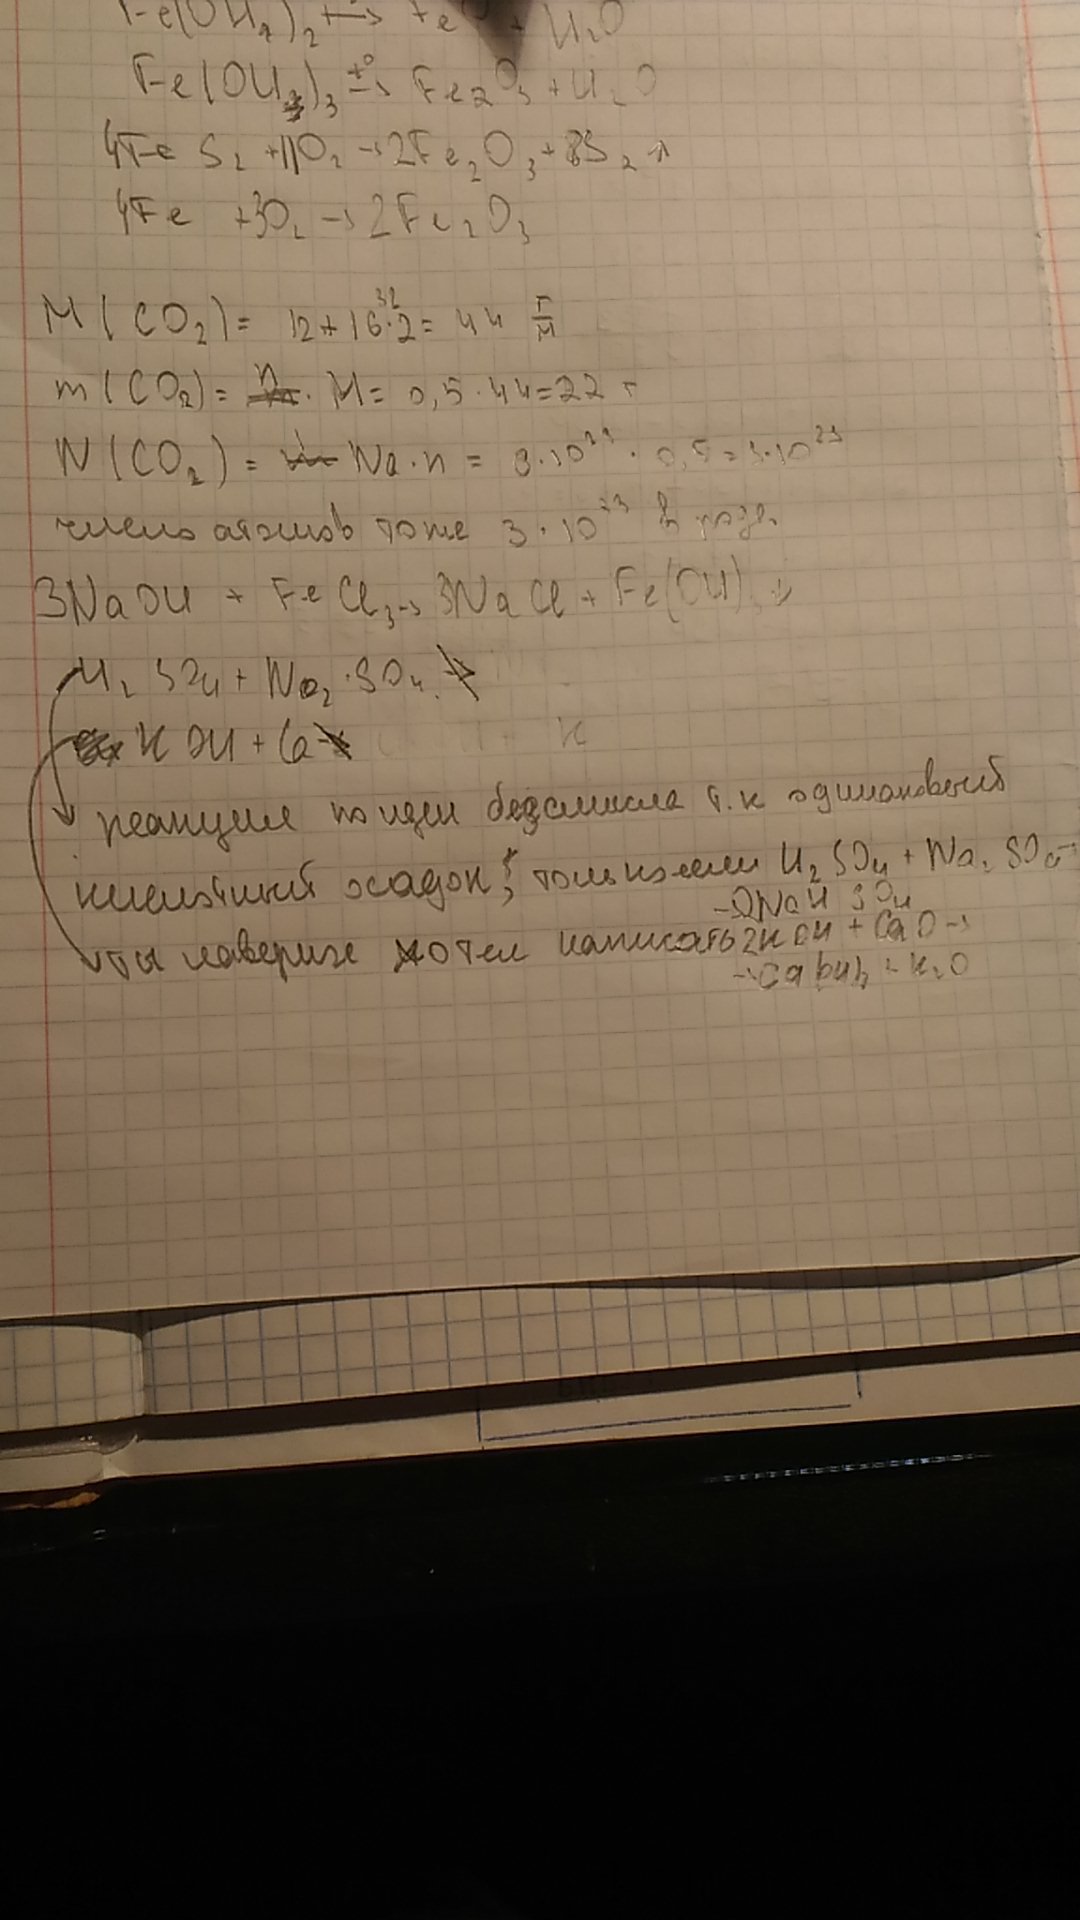 Fe(OH)₂ → FeO + H₂O
Fe(OH)₃ t°→ Fe₂O₃ + H₂O
4FeS₂ + 11O₂ → 2Fe₂O₃ + 8S₂ ↑
4Fe + 3O₂ → 2Fe₂O₃
M(CO₂) = 12 + 16·2 = 44 г/м
32
m(CO₂) = n · M = 0,5 · 44 = 22 г
N(CO₂) = Na · n = 10²³ · 0,5 = 3·10²³
число атомов тоже 3 · 10²³ в
3NaOH + FeCl₃ → 3NaCl + Fe(OH)₃↓
H₂SO₄ + Na₂SO₄
KOH + Ca
реакция по идеи безсмысла т.к одинаковый
кислотный осадок, только если H₂SO₄ + Na₂SO₄→
→2NaHSO₄
ты наверное хотел написать 2KOH + CaO →
→ Ca(OH)₂ + K₂O